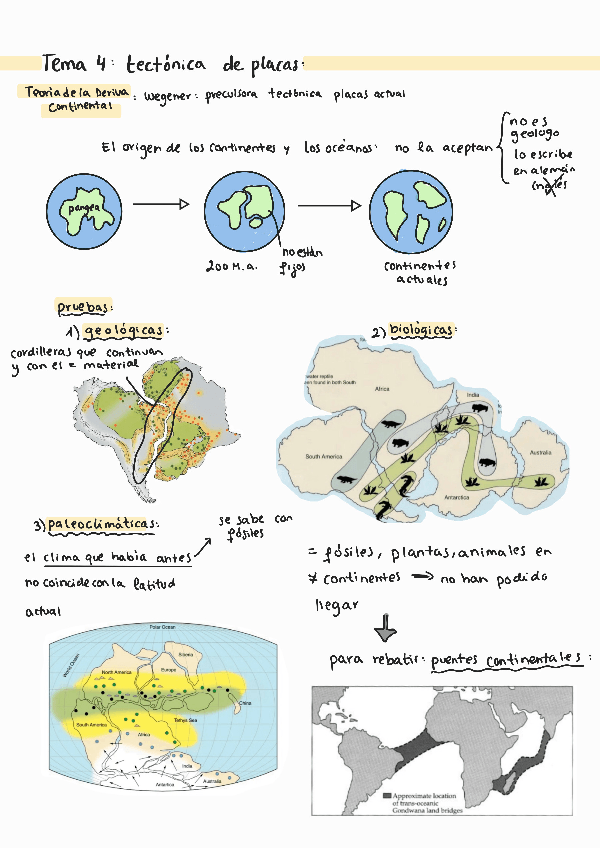 Tema 4: tectónica de placas:
Teoría de la Deriva Continental : Wegener: preculsora tectónica placas actual
El origen de los continentes y los océanos: no la aceptan
no es
geologo
lo escribe
en alemán
inglés
pangea
200 M.a.
no están
fijos
continentes
actuales
pruebas:
1) geológicas:
cordilleras que continuan
y con es = material
2) biológicas:
water reptile
en found in both South
Africa
India
South America
Australia
Antarctica
3) paleoclimáticas:
se sabe con
fósiles
el clima que había antes
no coincide con la latitud
actual
= fósiles, plantas, animales en
≠ continentes → no han podido
llegar
para rebatir: puentes continentales :
Polar Ocean
World Ocean
Siberia
North America
Europe
China
South America
Tethys Sea
Africa
India
Antartica
Australia
Approximate location
of trans-oceanic
Gondwana land bridges